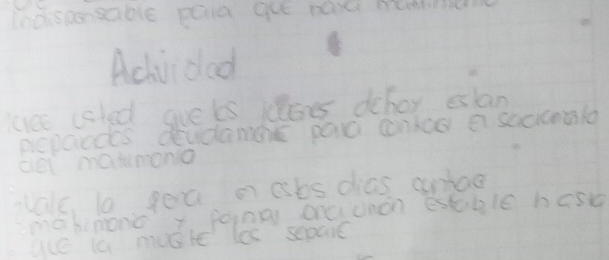 indispensable para que haya matrimonio
Actividad
cree usted que los jovenes de hoy estan
preparados devidamente para contraer el sacramento
del matrimonio
vale la pena en estos dias contraer
matrimonio y formar una union estable hasta
que la muerte los separe